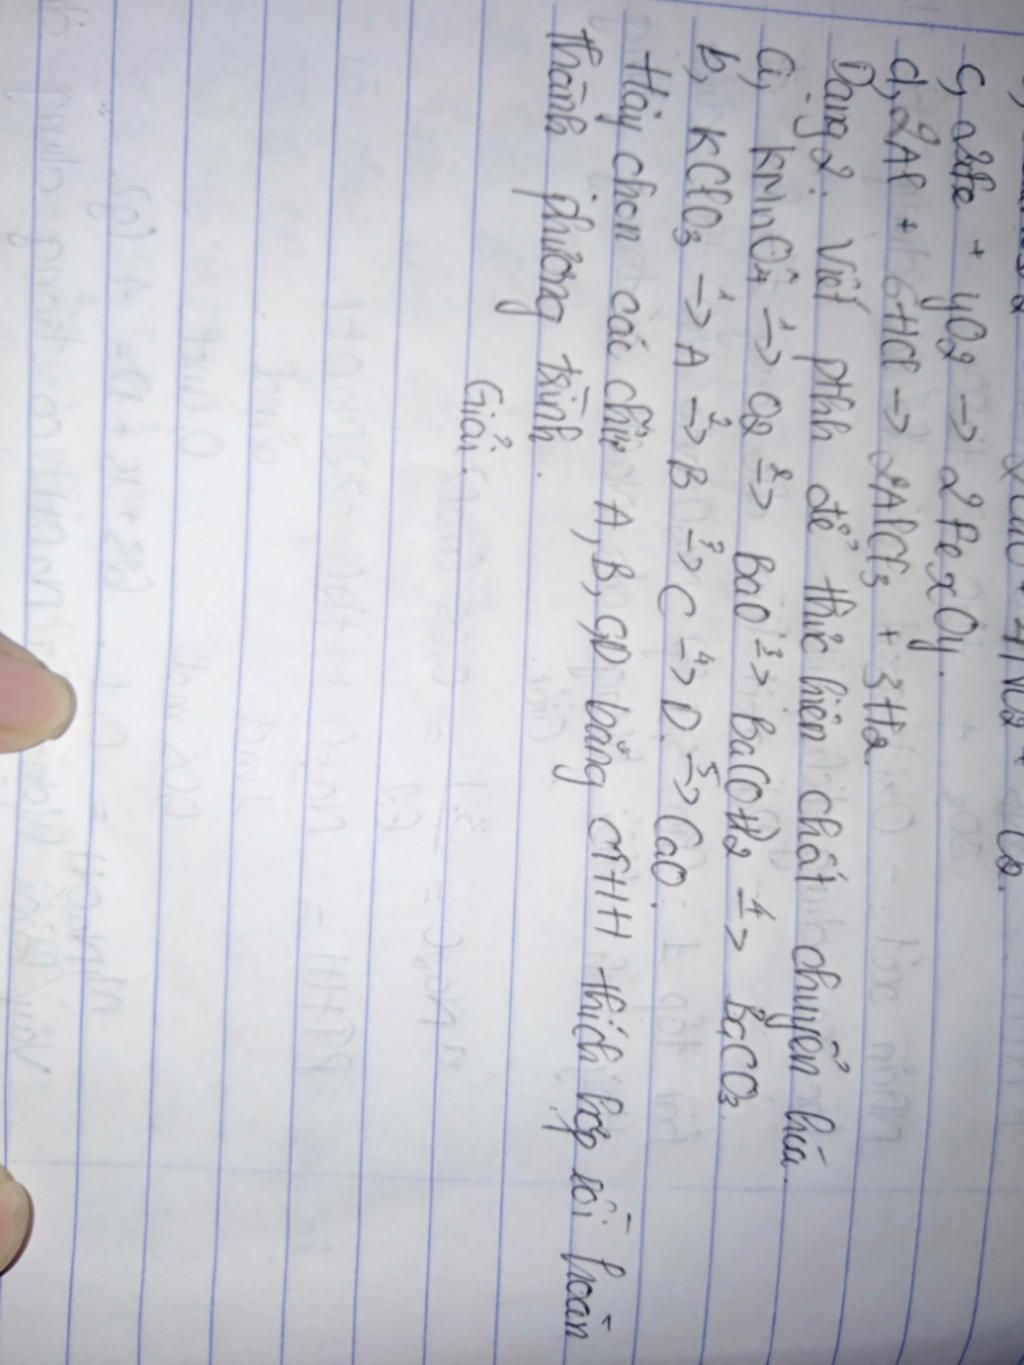 2CuO + 4NO2 + O2.
c, 2xFe + yO2 → 2FexOy.
d, 2Al + 6HCl → 2AlCl3 + 3H2
Dạng 2: Viết ptHh để thực hiện chất chuyển hóa.
a, KMnO4 -1-> O2 -2-> BaO -3-> Ba(OH2 -4-> BaCO3.
b, KClO3 -1-> A -2-> B -3-> C -4-> D. -5-> CaO.
Hãy chọn các chữ A, B, C, D bằng CTHH thích hợp rồi hoàn
thành phương trình.
Giải.